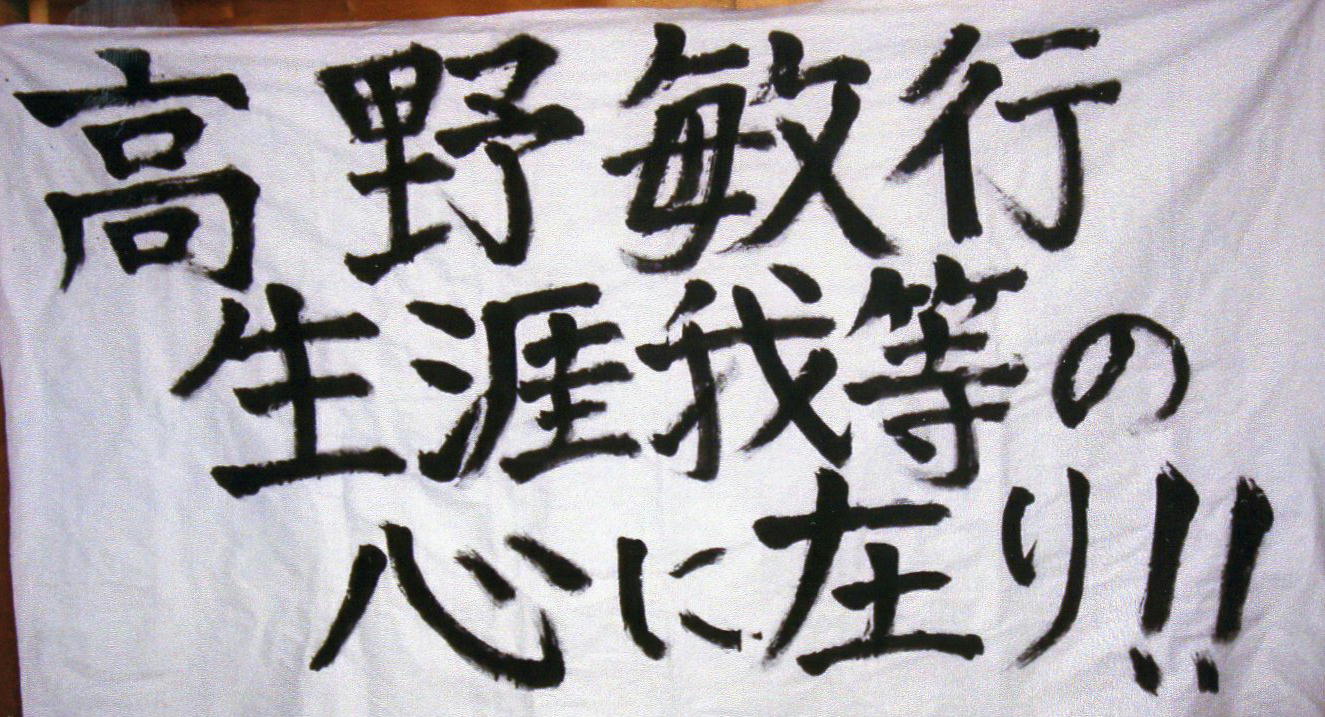 高野敏行
生涯我等の
心に在り!!